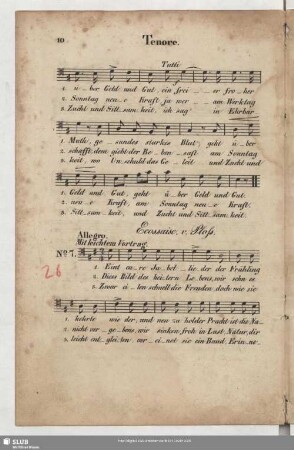 10
Tenore.
Tutti
1. ü-ber Geld und Gut, ein frei-er fro-her
2. Sonntag neu-e Kraft ja mor- am Werktag
3. Zucht und Sitt-sam-keit, ich sag' in Ehrbar
1. Muth, ge-sundes starkes Blut, geht ü-ber
2. schafft, dem giebt der am Sonntag
3. keit, wo Unschuld das Ge-leit und Zucht und
1. Geld und Gut, geht ü-ber Geld und Gut.
2. neu-e Kraft, am Sonntag neu-e Kraft.
3. Sitt-sam-keit, und Zucht und Sitt-sam-keit.
Ecossaise, v.
Allegro.
Mit leichtem Vortrag.
No. 7.
26
1. jubel-lie-der der Frühling
2. Dies Bild des hei-tern Le-bens, wir sehn es
3. Zwar ei-len schnell die Freuden, doch wie sie
1. kehrte wie-der, und neu zu holder Pracht ist die Na-
2. nicht ver-ge-bens, wir sinken froh in Lust, Natur, dir
3. leicht ent-glei-ten ver-ei-net sie ein Band, Erin-ne-
SLUB